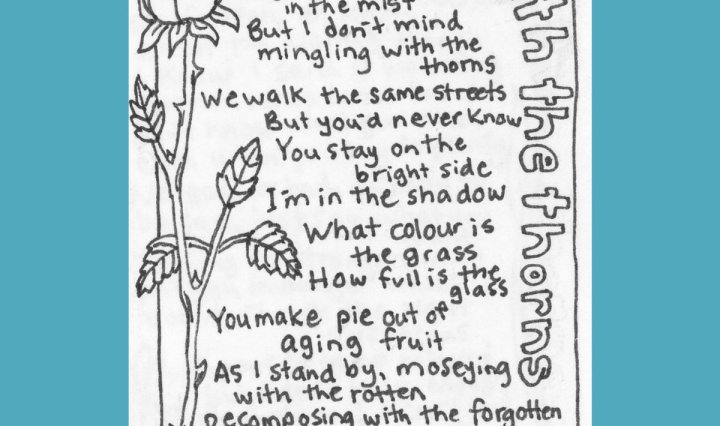 in the mist
But I don't mind
mingling with the
thorns
We walk the same streets
But you'd never know
You stay on the
bright side
I'm in the shadow
What colour is
the grass
How full is the
glass
You make pie out of
aging fruit
As I stand by, moseying
with the rotten
Decomposing with the forgotten
th the thorns